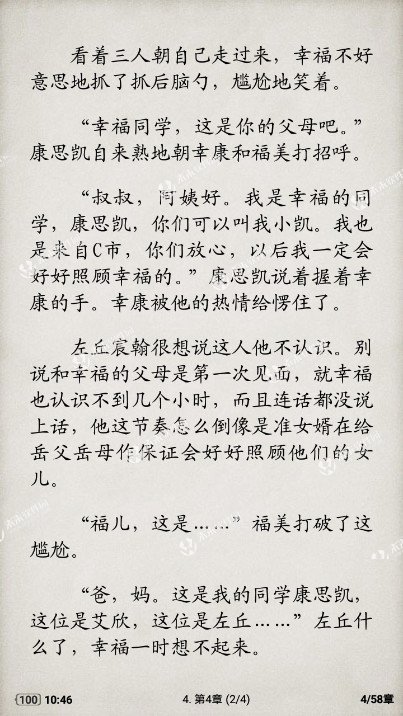 看着三人朝自己走过来，幸福不好
意思地抓了抓后脑勺，尴尬地笑着。
“幸福同学，这是你的父母吧。”
康思凯自来熟地朝幸康和福美打招呼。
“叔叔，阿姨好。我是幸福的同
学，康思凯，你们可以叫我小凯。我也
是来自C市，你们放心，以后我一定会
好好照顾幸福的。”康思凯说着握着幸
康的手。幸康被他的热情给愣住了。
左丘宸翰很想说这人他不认识。别
说和幸福的父母是第一次见面，就幸福
也认识不到几个小时，而且连话都没说
上话，他这节奏怎么倒像是准女婿在给
岳父岳母作保证会好好照顾他们的女
儿。
“福儿，这是……”福美打破了这
尴尬。
“爸，妈。这是我的同学康思凯，
这位是艾欣，这位是左丘……”左丘什
么了，幸福一时想不起来。
100 10:46 4. 第4章 (2/4) 4/58章